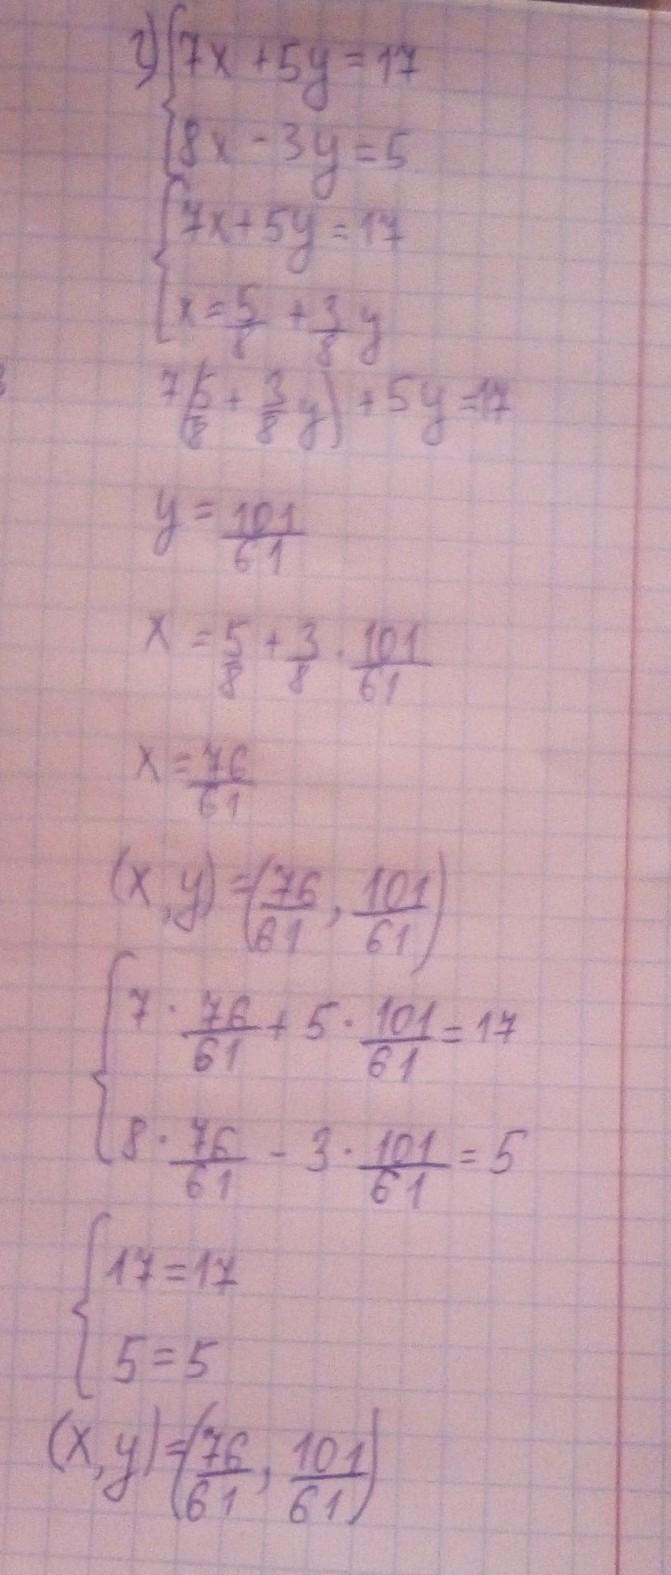 г) { 7x + 5y = 17
8x - 3y = 5
{ 7x + 5y = 17
x = 5/8 + 3/8 y
7(5/8 + 3/8 y) + 5y = 17
y = 101/61
x = 5/8 + 3/8 · 101/61
x = 76/61
(x, y) = (76/61, 101/61)
{ 7 · 76/61 + 5 · 101/61 = 17
8 · 76/61 - 3 · 101/61 = 5
{ 17 = 17
5 = 5
(x, y) = (76/61, 101/61)